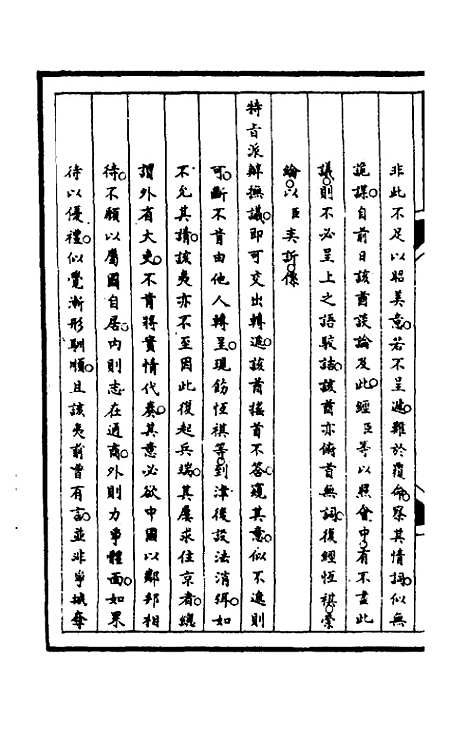 非此不足以昭美意若不呈遞難於覆命察其情詞似無
詭謀自前日該酋談論及此經臣等以照會中有不盡此
議則不必呈上之語駁詰該酋亦俯首無詞復經恆祺崇
綸以臣奕訢係
特旨派辦撫議即可交出轉遞該酋搖首不答窺其意似不遞則
可斷不肯由他人轉呈現飭恆祺等到津後設法消弭如
不允其請該夷亦不至因此復起兵端其屢求住京者總
謂外省大吏不肯將實情代奏其意必欲中國以鄰邦相
待不願以屬國自居內則志在通商外則力爭體面如果
待以優禮似覺漸形馴順且該夷前曾有言並非爭城奪